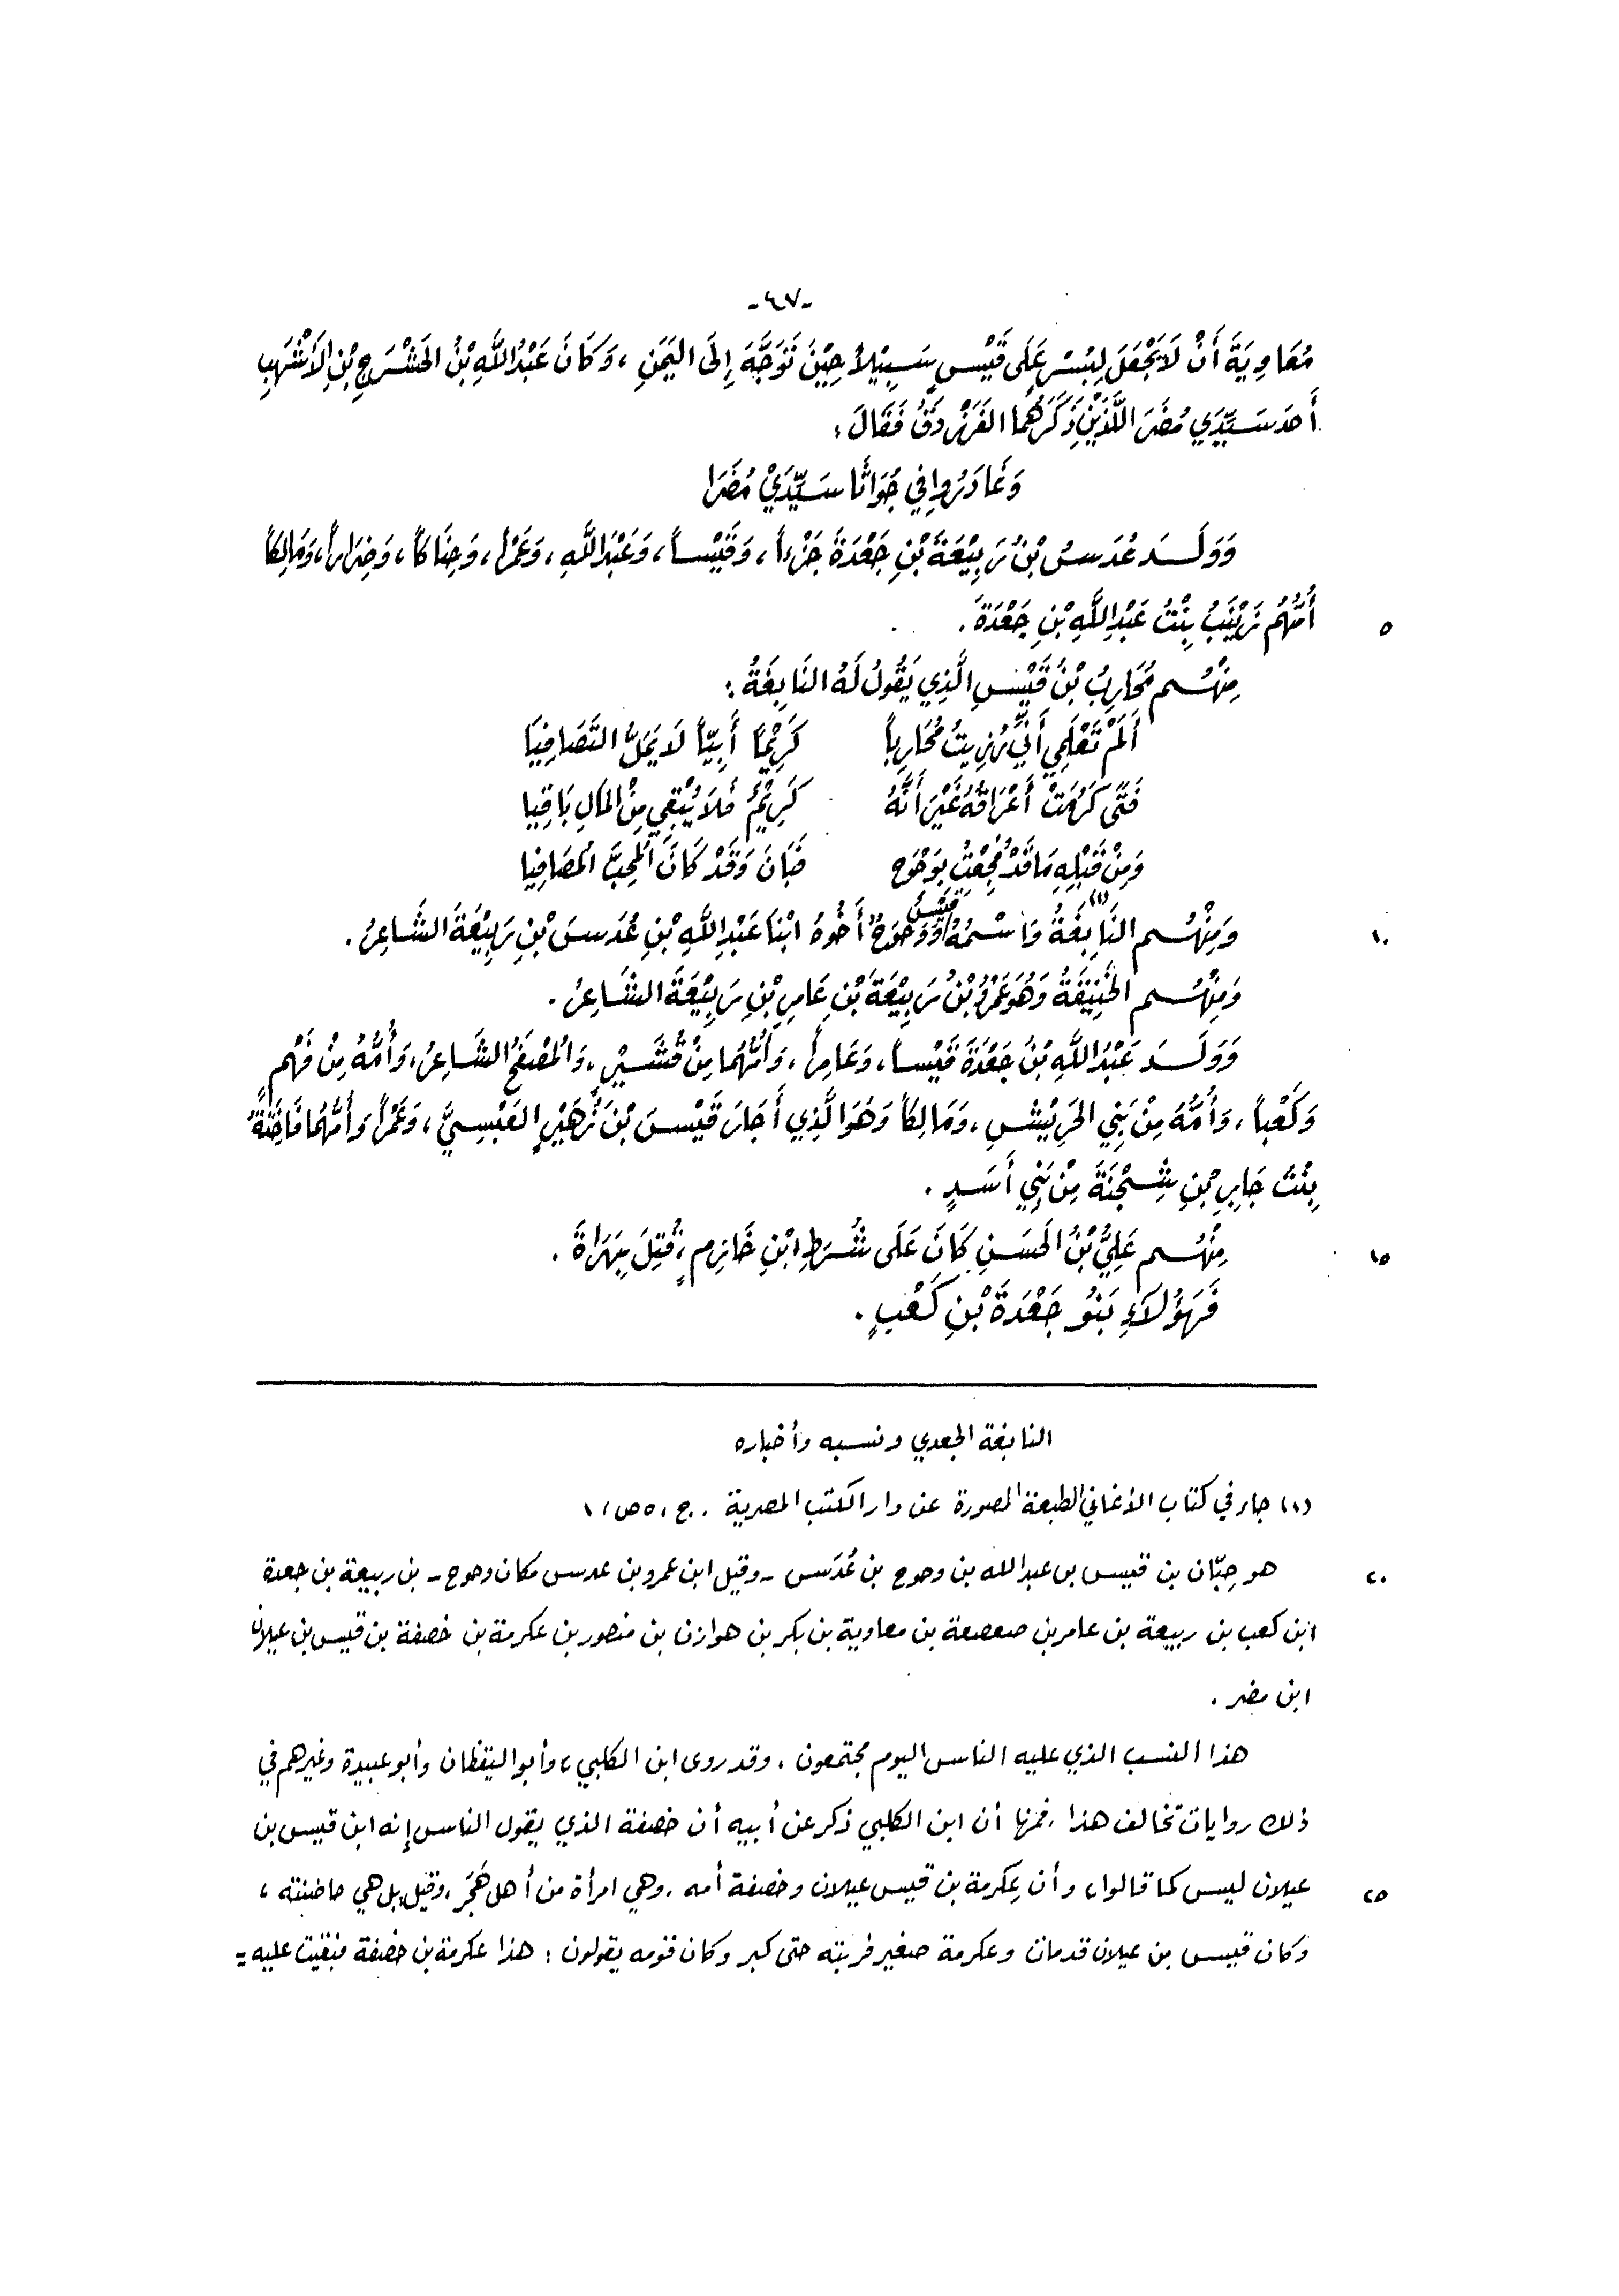 -٤٧-
مُعَاوِيَةَ أَنْ لَا يَجْعَلَ لِبُسْرٍ عَلَى قَيْسٍ سَبِيْلاً حِيْنَ تَوَجَّهَ إِلَى اليَمَنِ، وَكَانَ عَبْدُ اللَّهِ بْنُ الحَشْرَجِ بْنِ الأَشْهَبِ
أَحدَ سَيِّدَي مُضَرَ اللَّذَيْنِ ذَكَرَهُمَا الفَرَزْدَقُ فَقَالَ:
وَغَادَرُوا فِي جُوَاثَا سَيِّدَيْ مُضَرَا
وَوَلَدَ عُدَسُ بْنُ رَبِيْعَةَ بْنِ جَعْدَةَ جَزْءاً، وَقَيْساً، وَعَبْدَ اللَّهِ، وَعَمْراً، وَحِنَاكاً، وَضِرَاراً، وَمَالِكاً
أُمُّهُم زَيْنَبُ بِنْتُ عَبْدِ اللَّهِ بْنِ جَعْدَةَ. ٥
مِنْهُم مُحَارِبُ بْنُ قَيْسٍ الَّذِي يَقُولُ لَهُ النَابِغَةُ:
أَلَمْ تَعْلَمِي أَنِّي رُزِيتُ مُحَارِباً كَرِيْمَاً أَبِيّاً لَا يَمَلُّ التَصَافِيَا
فَتًى كَرُمَتْ أَعْرَاقُهُ غَيْرَ أَنَّهُ كَرِيْمٌ فَلَا يُبْقِي مِنْ المَالِ بَاقِيا
وَمِنْ قَبْلِهِ مَا قَدْ فُجِعْتُ بِوَحْوَحٍ فَبَانَ وَقَدْ كَانَ المُحِبَّ المُصَافِيا
وَمِنْهُم النَابِغَةُ (١) وَاسْمُهُ قَيْسٌ وَوَحْوَحٌ أَخُوهُ ابْنَا عَبْدِ اللَّهِ بْنِ عُدَسَ بْنِ رَبِيْعَةَ الشَاعِرُ. ١٠
وَمِنْهُم الحَنِيَفَةُ وَهُوَ عَمْرُو بْنُ رَبِيْعَةَ بْنِ عَامِرِ بْنِ رَبِيْعَةَ الشَاعِرُ.
وَوَلَدَ عَبْدُ اللَّهِ بْنُ جَعْدَةَ قَيْساً، وَعَامِراً، وَأُمُّهُمَا مِنْ قُشَيْرٍ، وَالمُصْفَحُ الشَاعِرُ، وَأُمُّهُ مِنْ فَهْمٍ
وَكَعْباً، وَأُمُّهُ مِنْ بَنِي الحَرِيْشِ، وَمَالِكاً وَهُوَ الَّذِي أَجَارَ قَيْسَ بْنَ زُهَيْرٍ العَبْسِيَّ، وَعَمْراً وَأُمُّهُمَا فَاخِتَةُ
بِنْتُ جَابِرِ بْنِ شِجْنَةَ مِنْ بَنِي أَسَدٍ.
مِنْهُم عَلِيُّ بْنُ الحَسَنِ كَانَ عَلَى شُرَطِ ابْنِ خَازِمٍ، قُتِلَ بِهَرَاةَ. ١٥
فَهَؤُلَاءِ بَنُو جَعْدَةَ بْنِ كَعْبٍ.
النابغة الجعدي ونسبه وأخباره
(١) جاء في كتاب الأغاني الطبعة المصورة عن دار الكتب المصرية. ج، ٥ ص/ ١
هو حِبّان بن قيس بن عبد الله بن وحوح بن عُدَس - وقيل ابن عمرو بن عدس مكان وحوح - بن ربيعة بن جعدة ٢٠
ابن كعب بن ربيعة بن عامر بن صعصعة بن معاوية بن بكر بن هوازن بن منصور بن عكرمة بن خصفة بن قيس بن عيلان
ابن مضر.
هذا النسب الذي عليه الناس اليوم مجتمعون، وقد روى ابن الكلبي، وأبو اليقظان وأبو عبيدة وغيرهم في
ذلك روايات تخالف هذا، فمنها أن ابن الكلبي ذكر عن أبيه أن خصفة الذي يقول الناس إنه ابن قيس بن
عيلان ليس كما قالوا، وأن عِكرمة بن قيس عيلان وخصفة أمه، وهي امرأة من أهل هَجَر، وقيل بل هي حاضنته، ٢٥
وكان قيس بن عيلان قد مات وعكرمة صغير فربته حتى كبر وكان قومه يقولون: هذا عكرمة بن خصفة فبقيت عليه =